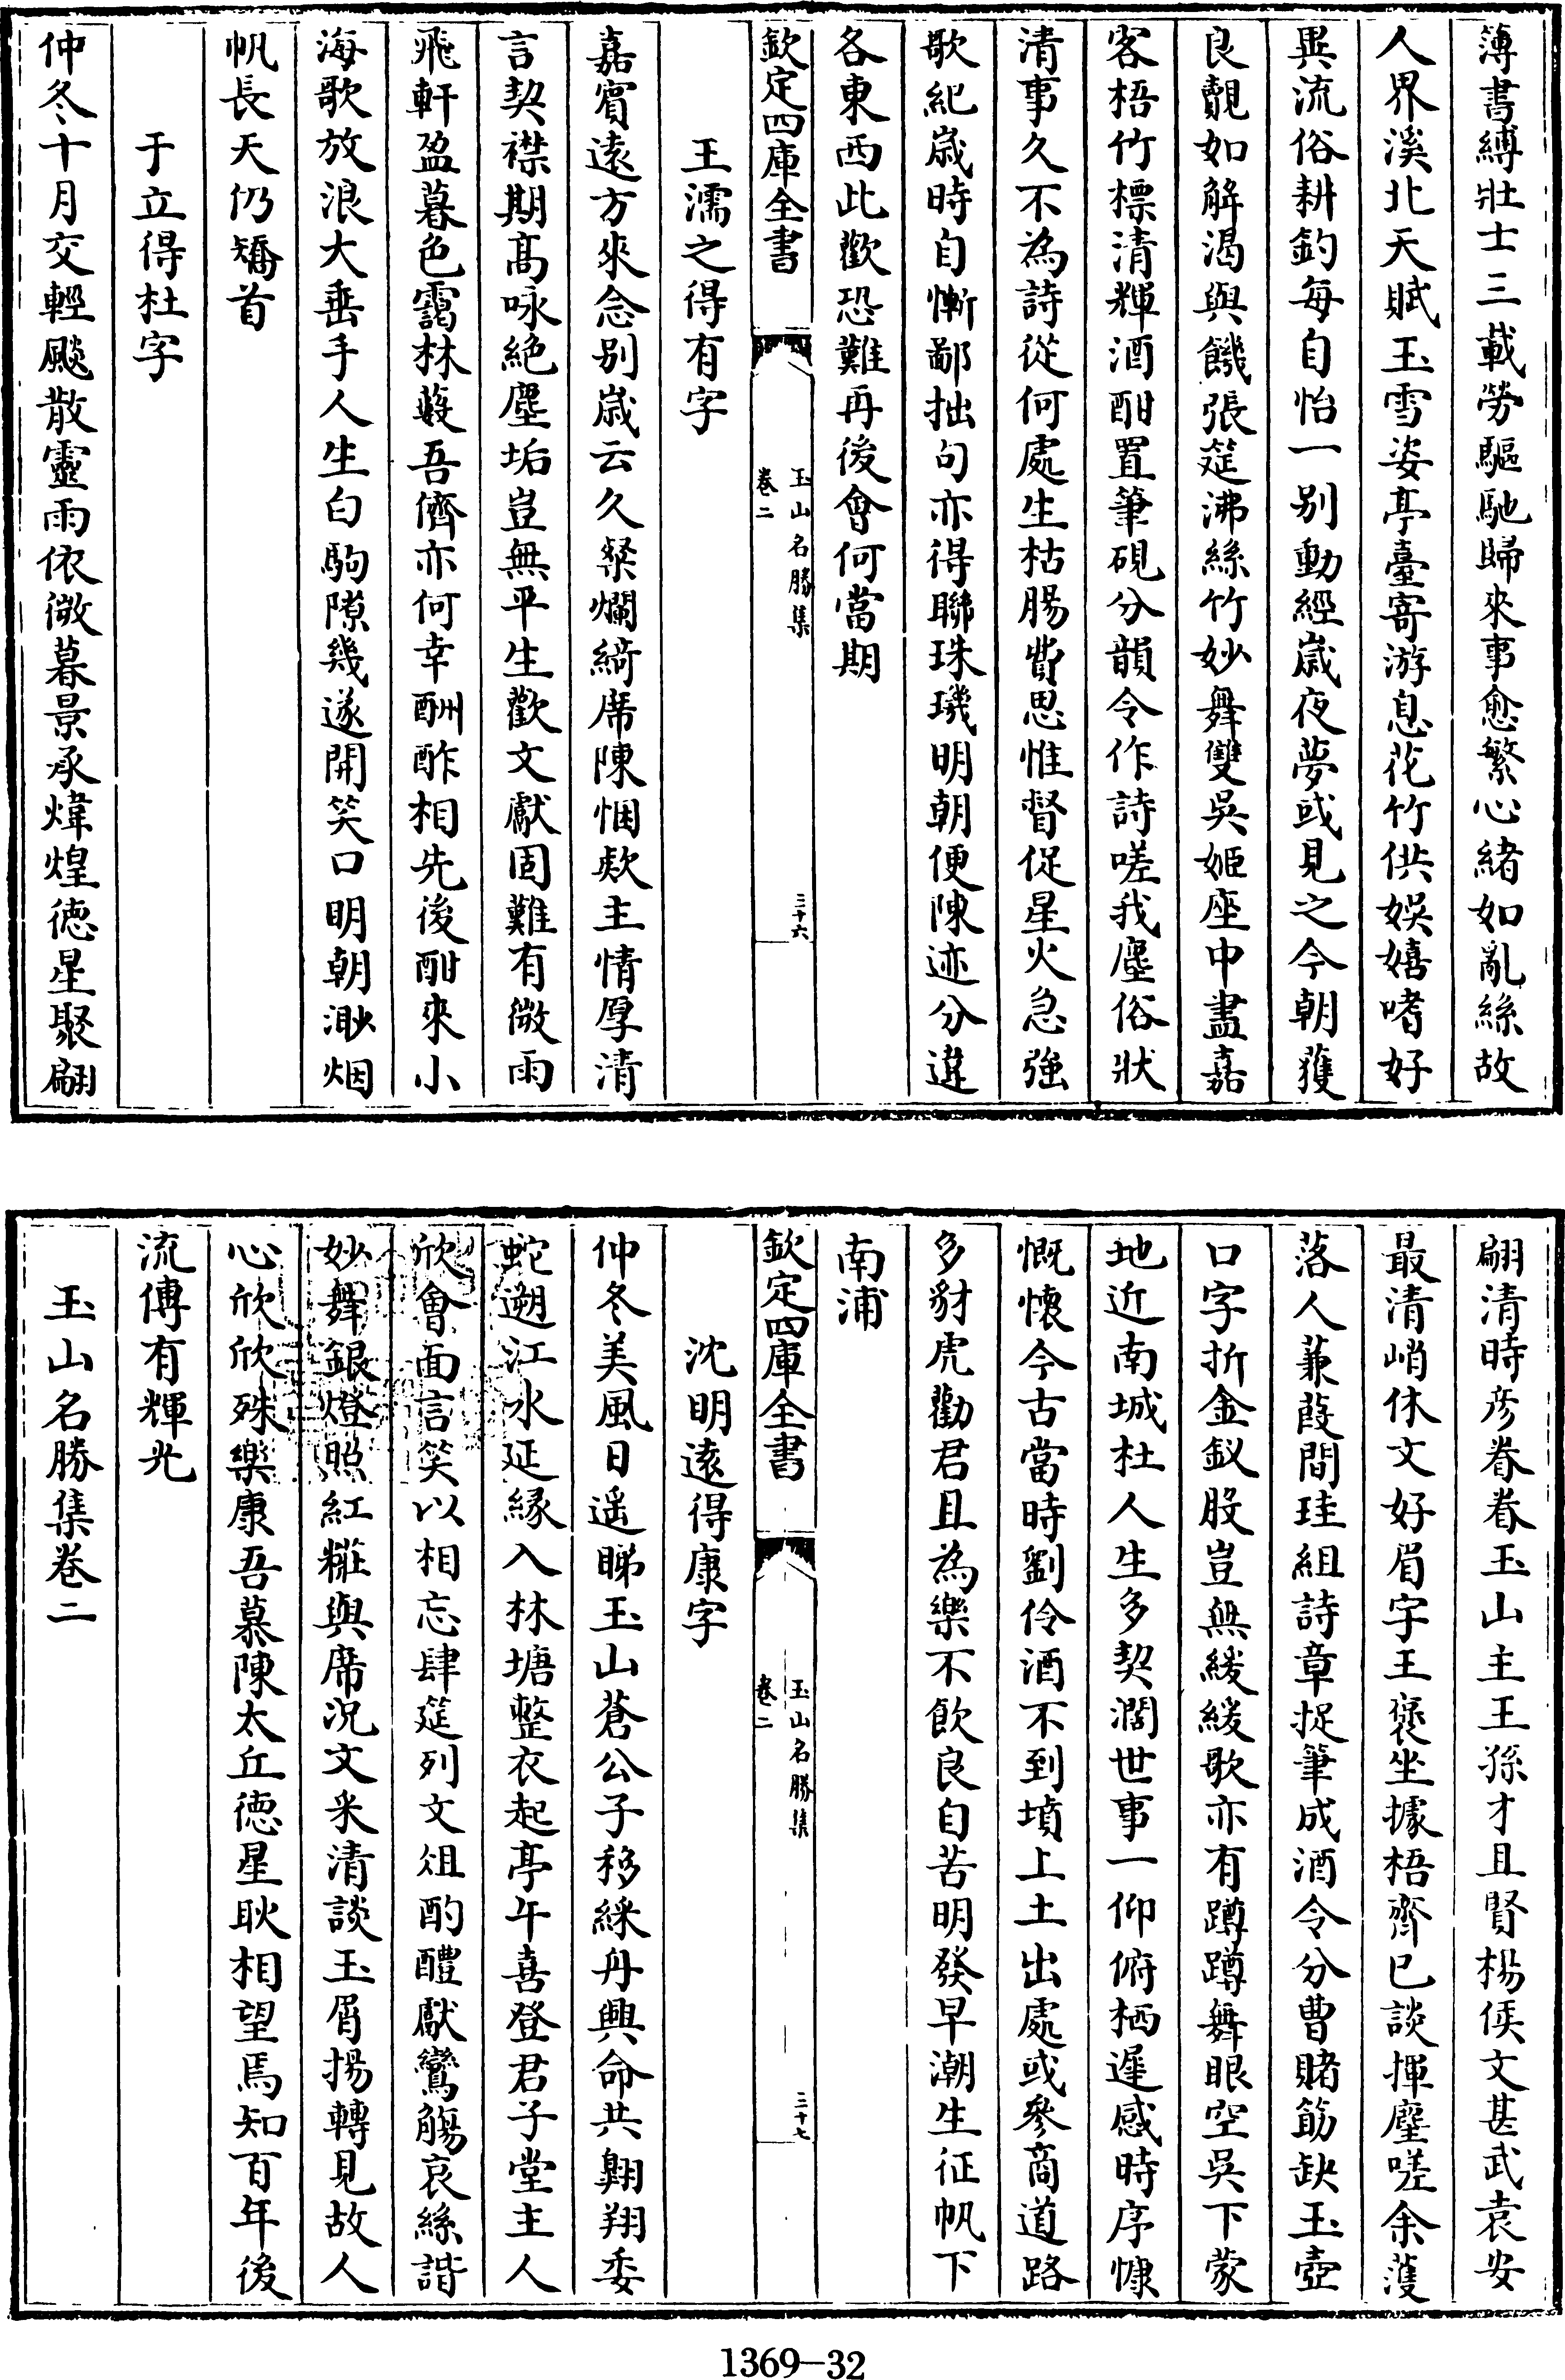 簿書縛壯士三載勞驅馳歸來事愈繁心緒如亂絲故
人界溪北天賦玉雪姿亭臺寄游息花竹供娛嬉嗜好
異流俗耕釣每自怡一别動經歲夜夢或見之今朝獲
良覿如解渴與饑張筵沸絲竹妙舞雙吳姬座中盡嘉
客梧竹標清輝酒酣置筆硯分韻令作詩嗟我塵俗狀
清事久不為詩從何處生枯腸費思惟督促星火急強
歌紀歲時自慚鄙拙句亦得聯珠璣明朝便陳迹分違
各東西此歡恐難再後會何當期
欽定四庫全書
玉山名勝集
卷二
三十六
王濡之得有字
嘉賔遠方來念别歲云久粲爛綺席陳悃欵主情厚清
言契襟期髙咏絶塵垢豈無平生歡文獻固難有微雨
飛軒盈暮色靄林薮吾儕亦何幸酬酢相先後酣來小
海歌放浪大垂手人生白駒隙幾遂開笑口明朝渺烟
帆長天仍矯首
于立得杜字
仲冬十月交輕颷散靈雨依微暮景承煒煌徳星聚翩
翩清時彦眷眷玉山主王孫才且賢楊侯文甚武袁安
最清峭休文好眉宇王褒坐據梧齊已談揮麈嗟余蒦
落人蒹葭間珪組詩章捉筆成酒令分曹賭筯缺玉壺
口字折金釵股豈無緩緩歌亦有蹲蹲舞眼空吳下蒙
地近南城杜人生多契濶世事一仰俯栖遲感時序慷
慨懷今古當時劉伶酒不到墳上土出處或參商道路
多豺虎勸君且為樂不飲良自苦明發早潮生征帆下
南浦
欽定四庫全書
玉山名勝集
卷二
三十七
沈明遠得康字
仲冬美風日遥睇玉山蒼公子移綵舟興命共翺翔委
蛇遡江水延縁入林塘整衣起亭午喜登君子堂主人
欣會面言笑以相忘肆筵列文俎酌醴獻鸞觴哀絲諧
妙舞銀燈照紅粧與席况文采清談玉屑揚轉見故人
心欣欣殊樂康吾慕陳太丘徳星耿相望焉知百年後
流傳有輝光
玉山名勝集卷二
1369-32